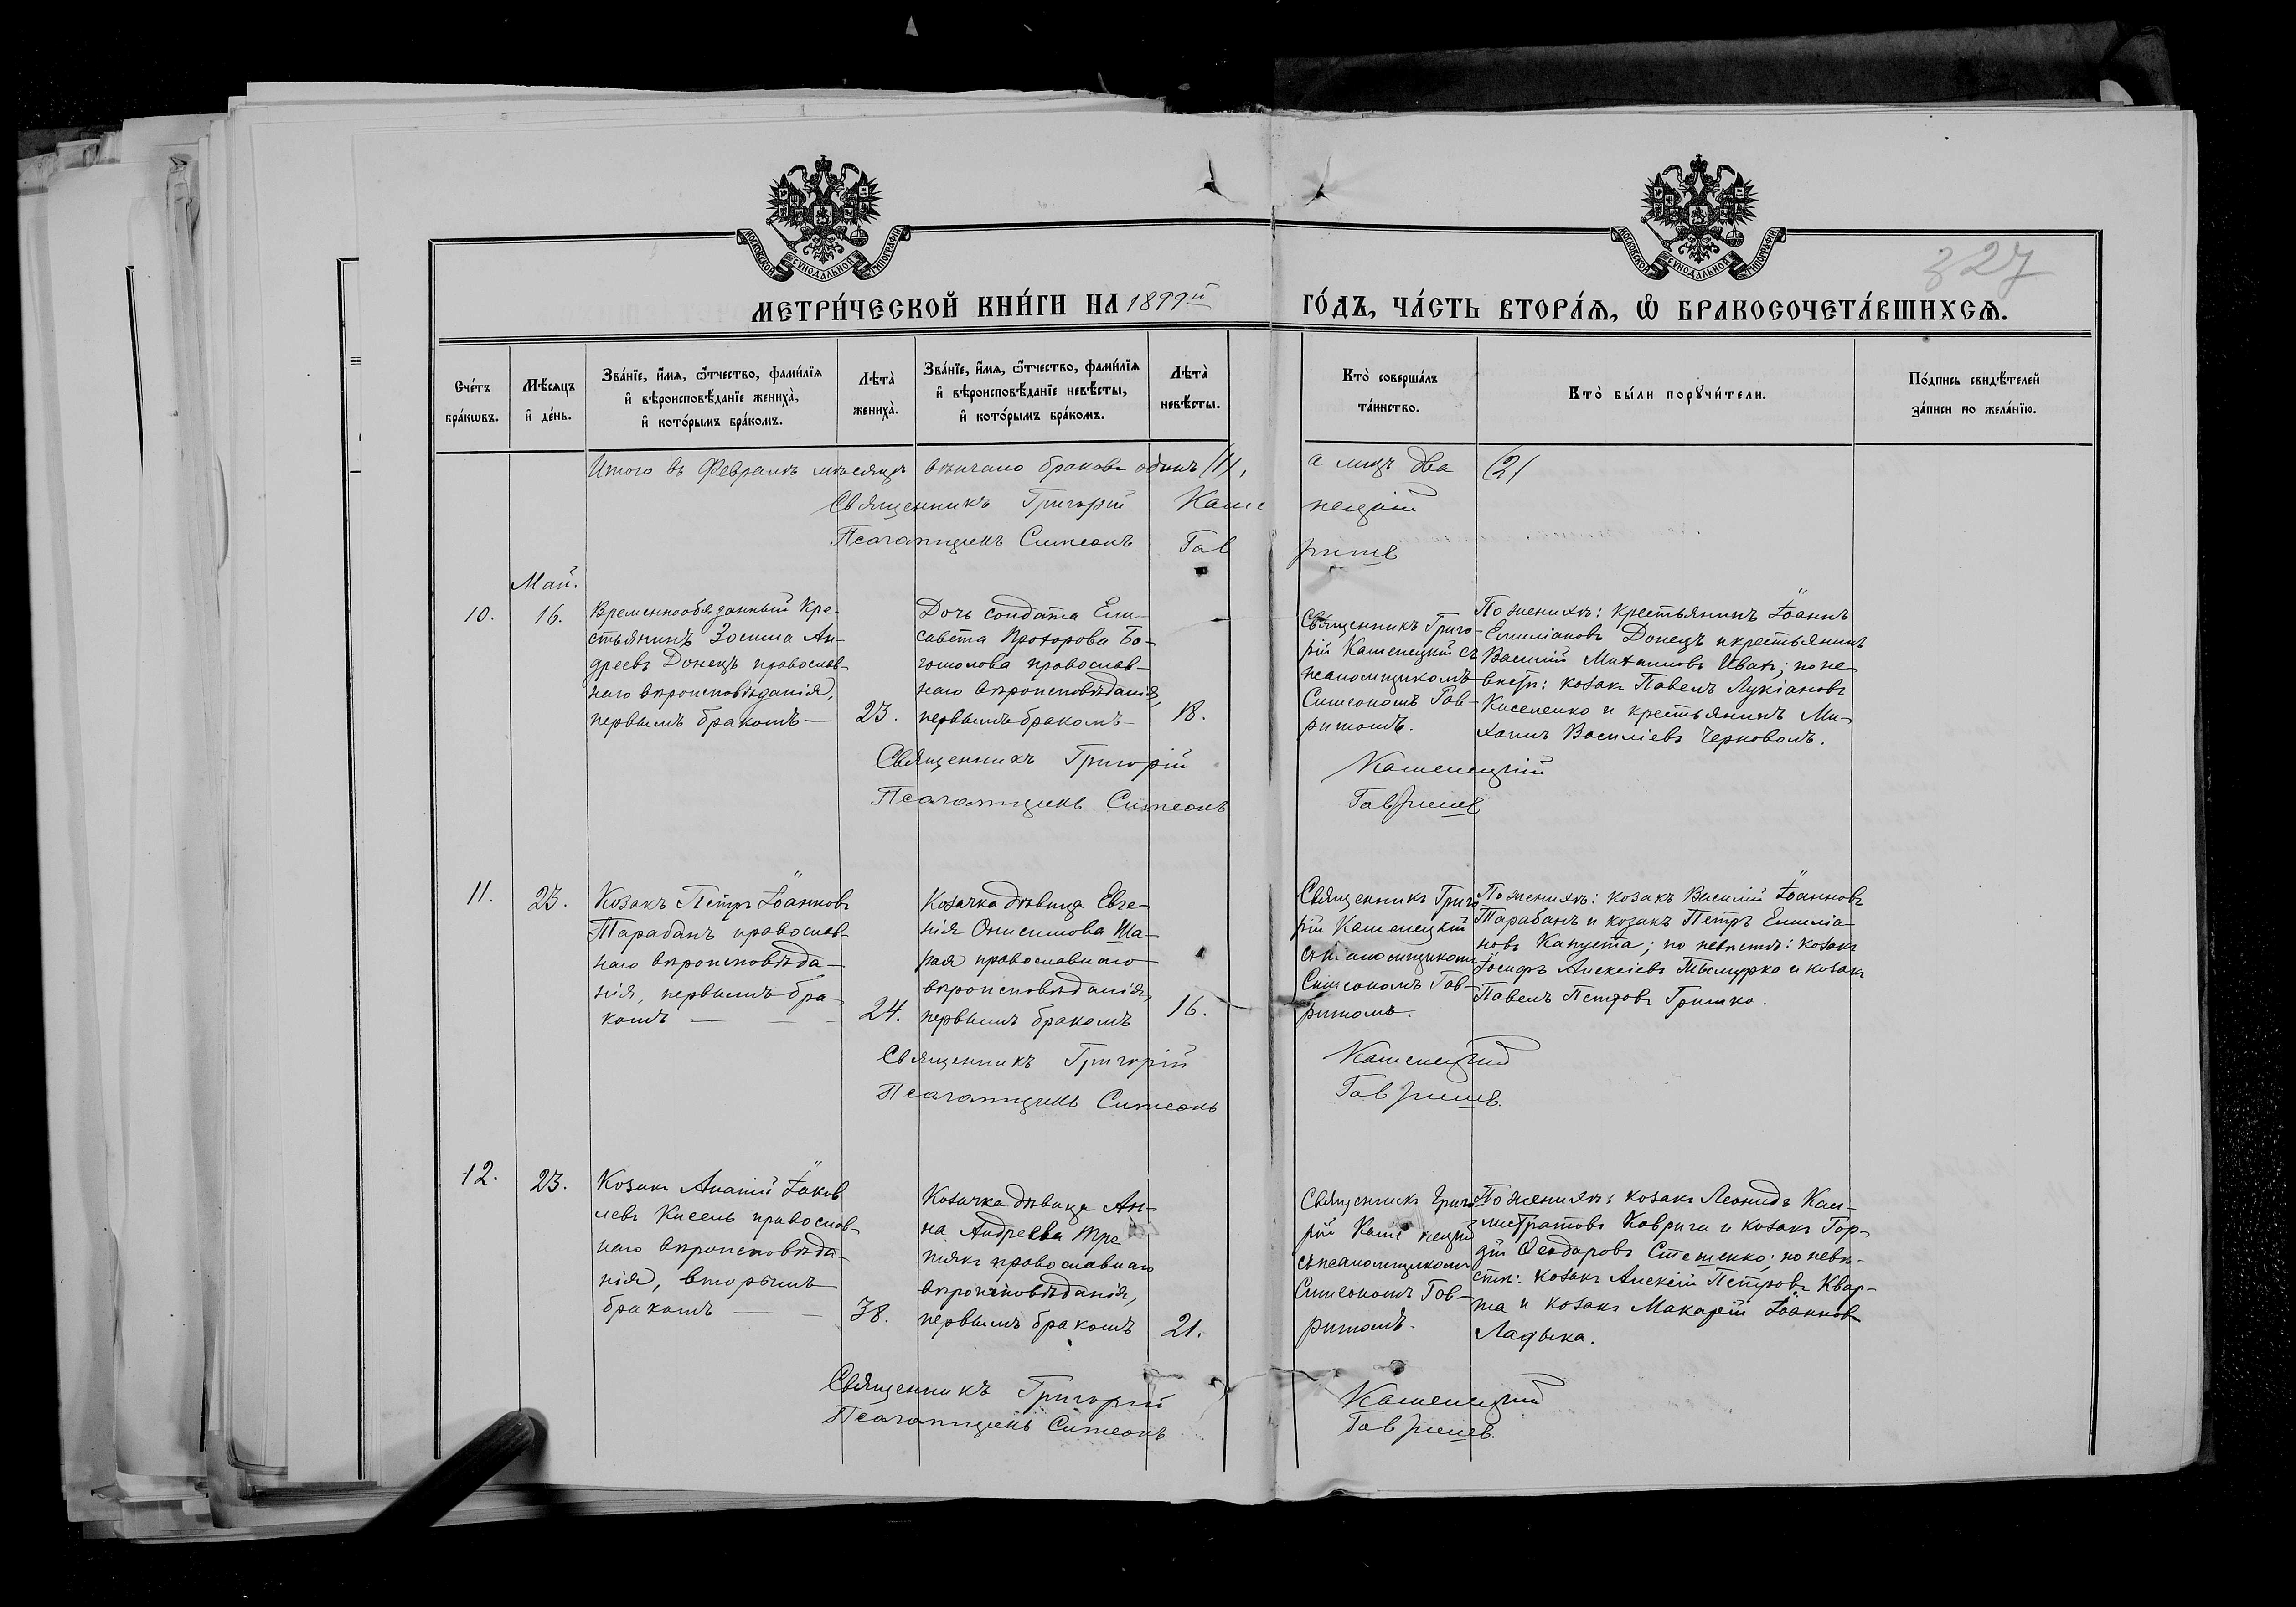 МОСКОВСКОЙ СѴНОДАЛЬНОЙ ТИПОГРАФІИ
МОСКОВСКОЙ СѴНОДАЛЬНОЙ ТИПОГРАФІИ
327
МЕТРИ́ЧЕСКОЙ КНИ́ГИ НА 1899й ГО́ДЪ, ЧА́СТЬ ВТОРА́Я, Ѡ҆ БРАКОСОЧЕТА́ВШИХСЯ.
Сче́тъ бра́кѡвъ.
Мѣ́сяцъ и҆ де́нь.
Зва́нїе, и҆́мя, ѻ҆́тчество, фами́лїя и҆ вѣроисповѣ́данїе жениха̀, и҆ кото́рымъ бра́комъ.
Лѣта̀ жениха̀.
Зва́нїе, и҆́мя, ѻ҆́тчество, фами́лїя и҆ вѣроисповѣ́данїе невѣ́сты, и҆ кото́рымъ бра́комъ.
Лѣта̀ невѣ́сты.
Кто̀ соверша́лъ та́инство.
Кто̀ бы́ли порꙋчи́тели.
По́дпись свидѣ́телей за́писи по жела́нїю.
Итого въ Февралѣ мѣсяцѣ вѣнчано браковъ одинъ /1/, а лицъ два /2/
Священникъ Григорій Каменецкій
Псаломщикъ Симеонъ Гаврише
Май.
10.
16.
Временнообязанный Кре-
стьянинъ Зосима Ан-
дреевъ Донецъ православ-
наго вѣроисповѣданія,
первымъ бракомъ —
23.
Дочь солдата Ели-
савета Прохорова Бо-
гомолова православ-
наго вѣроисповѣданія,
первымъ бракомъ —
18.
Священникъ Григо-
рій Каменецкій съ
псаломщикомъ
Симеономъ Гав-
ришомъ.
По женихѣ: крестьянинъ Іоаннъ
Емиліановъ Донецъ и крестьянинъ
Василій Михаиловъ Ивах; по не-
вѣстѣ: козакъ Павелъ Лукіановъ
Киселенко и крестьянинъ Ми-
хаилъ Василіевъ Черноволъ.
Священникъ Григорій Каменецкій
Псаломщикъ Симеонъ Гаврише
11.
23.
Козакъ Петръ Іоанновъ
Тарабанъ православ-
наго вѣроисповѣда-
нія, первымъ бра-
комъ — — —
24.
Козачка дѣвица Евге-
нія Онисимова Ша-
рая православнаго
вѣроисповѣданія,
первымъ бракомъ
16.
Священникъ Григо
рій Каменецкій
съ псаломщикомъ
Симеономъ Гав-
ришомъ.
По женихѣ: козакъ Василій Іоанновъ
Тарабанъ и козакъ Петръ Емиліа-
новъ Капуста; по невѣстѣ: козакъ
Іосифъ Алексіевъ и козакъ
Павелъ Петровъ Гришко.
Священникъ Григорій Каменецкій
Псаломщикъ Симеонъ Гаврише.
12.
23.
Козакъ Ананій Іаков
левъ Кисель православ-
наго вѣроисповѣда-
нія, вторымъ
бракомъ — —
38.
Козачка дѣвица Ан-
на Андреева Тре
пякъ православнаго
вѣроисповѣданія,
первымъ бракомъ
21.
Священникъ Григо
рій Каменецкій
съ псаломщикомъ
Симеономъ Гав-
ришомъ.
По женихѣ: козакъ Леонидъ Кал-
листратовъ Каврига и козакъ Гор-
дій Ѳеодоровъ Стешенко; по невѣ-
стѣ: козакъ Алексій Петровъ Квар-
та и козакъ Макарій Іоанновъ
Ладыка.
Священникъ Григорій Каменецкій
Псаломщикъ Симеонъ Гаврише.